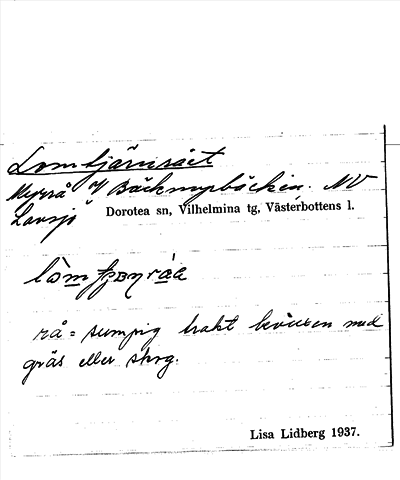 Lomtjärnrået
Myrrå i/ Bäckmyrbäcken. NV
Lavsjö
Dorotea sn, Vilhelmina tg, Västerbottens l.
rå = sumpig trakt beväxen med
gräs eller skog.
Lisa Lidberg 1937.